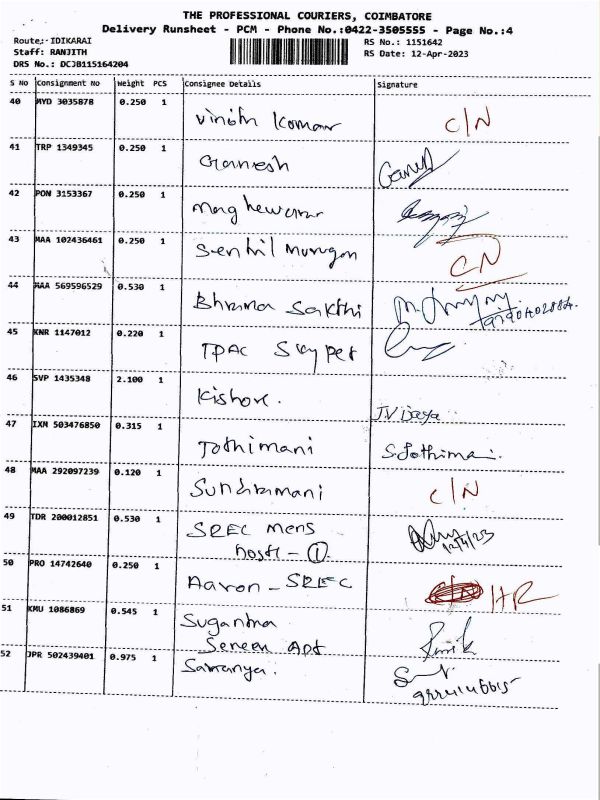 THE PROFESSIONAL COURIERS, COIMBATORE
Delivery Runsheet - PCM - Phone No.:0422-3505555 - Page No.:4
Route:-IDIKARAI RS No.: 1151642
Staff: RANJITH RS Date: 12-Apr-2023
DRS No.: DCJB115164204
S No Consignment No Weight PCS Consignee Details Signature
40 MYD 3035878 0.250 1 Vinoth Kumar C/N
41 TRP 1349345 0.250 1 Ganesh
42 PON 3153367 0.250 1 Magheswaran
43 MAA 102436461 0.250 1 Senthil Murugan CN
44 MAA 569596529 0.530 1 Bhrama Sakthi
45 KNR 1147012 0.220 1 TPAC Skypet
46 SVP 1435348 2.100 1 Kishore. J.Vijaya
47 IXM 503476850 0.315 1 Jothimani S.Jothimani.
48 MAA 292097239 0.120 1 Sundramani C/N
49 TDR 200012851 0.530 1 SREC Mens 12/4/23
hostl - 1
50 PRO 14742640 0.250 1 Aaron - SREC HR
51 KMU 1086869 0.545 1 Sugantha
Sereen Apt
52 JPR 502439401 0.975 1 Saranya.